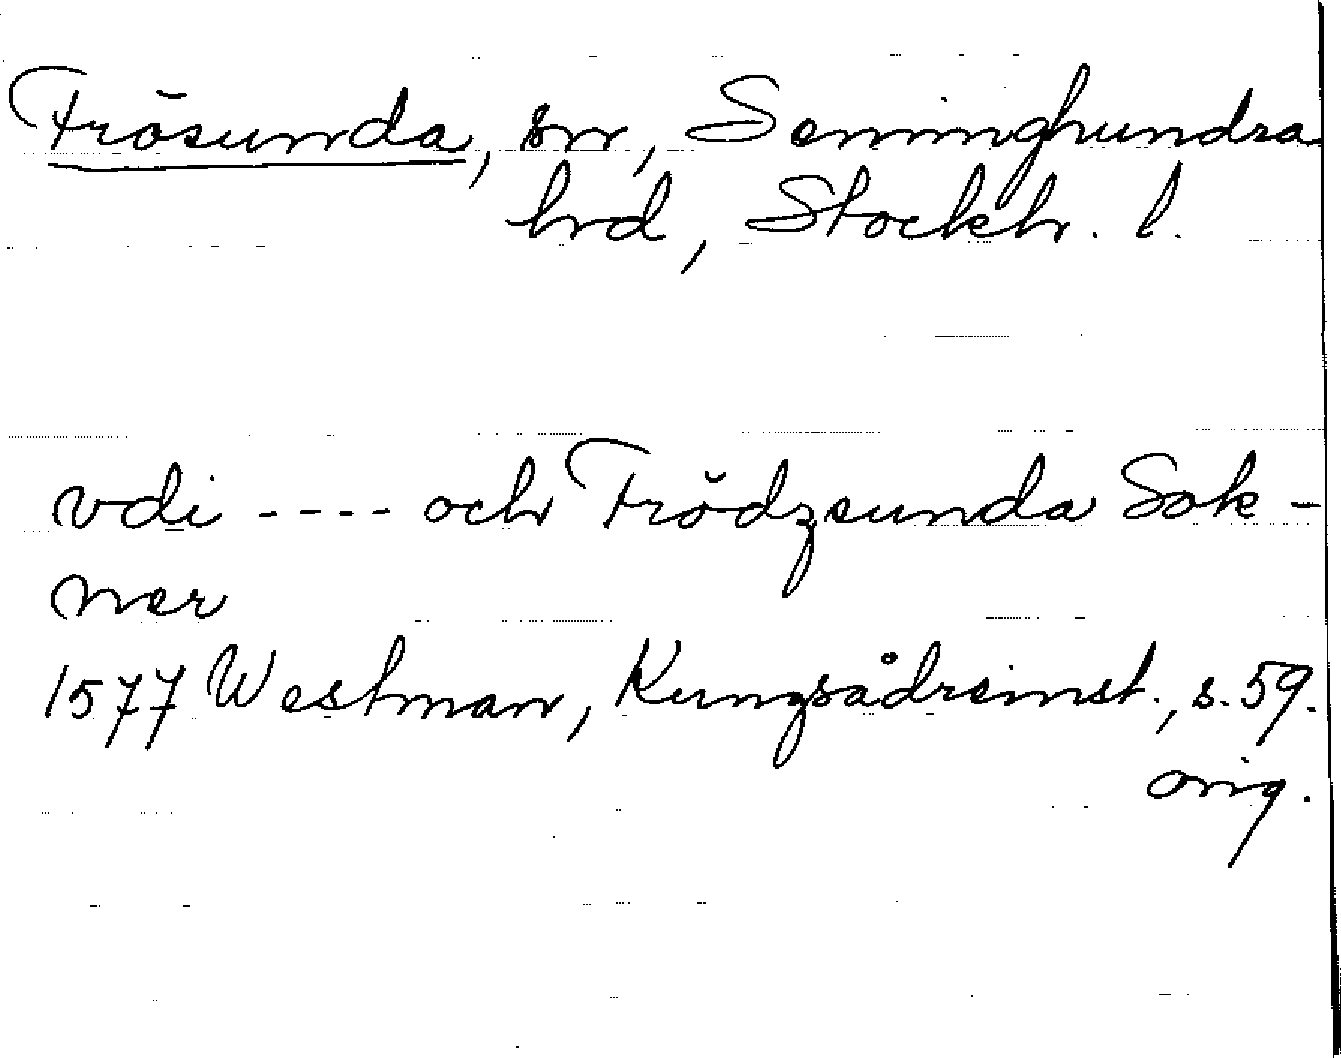 Frösunda, sn, Seminghundra
hrd, Stockh. l.
vdi ---- och Frödzsunda Sok-
ner
1577 Westman, Kungsådreinst., s. 59.
orig.